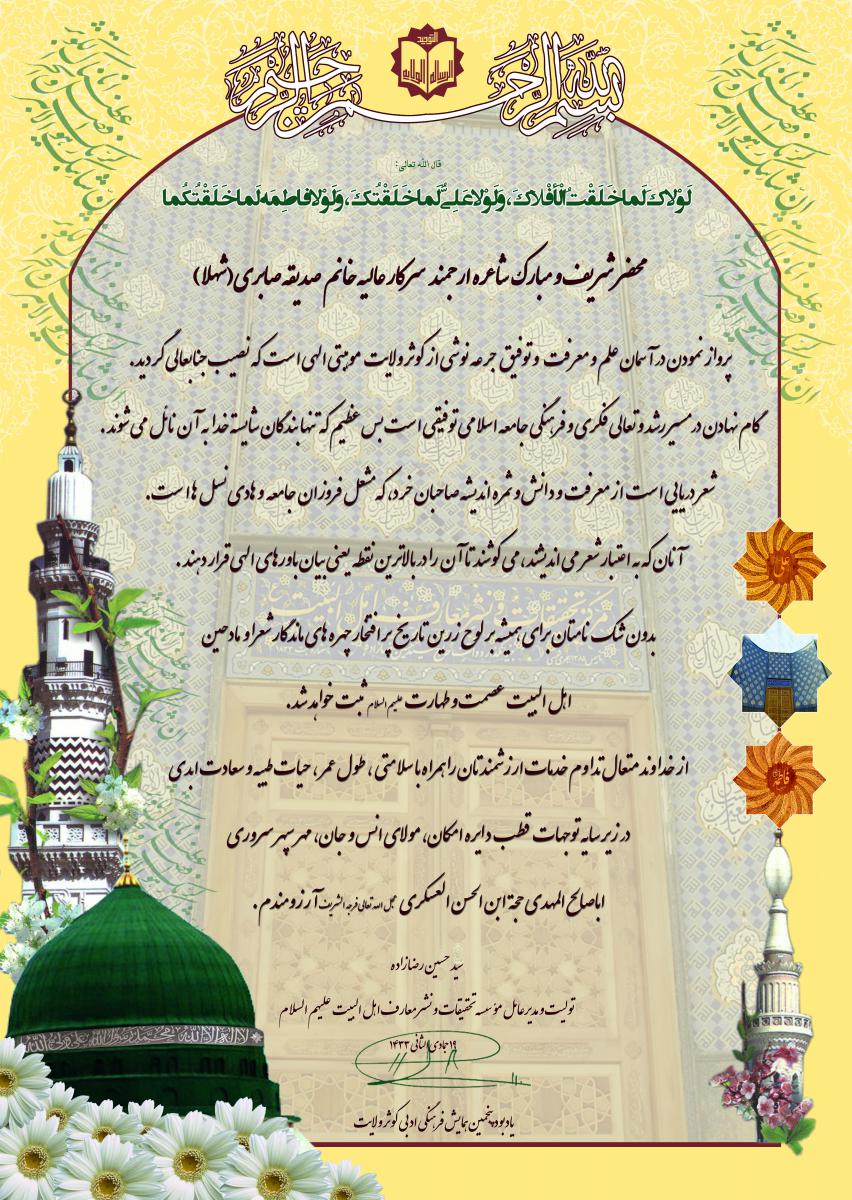 بسم الله الرحمن الرحیم
التوحید
الرساله الولایه
قال الله تعالی:
لَوْلاکَ لَما خَلَقْتُ الْأَفْلاکَ، وَلَوْلا عَلِیٌّ لَما خَلَقْتُکَ، وَلَوْلا فاطِمَه لَما خَلَقْتُکُما
محضر شریف و مبارک شاعره ارجمند سرکار عالیه خانم صدیقه صابری (شهلا)
پرواز نمودن در آسمان علم و معرفت و توفیق جرعه نوشی از کوثر ولایت موهبتی الهی است که نصیب جنابعالی گردید.
گام نهادن در مسیر رشد و تعالی فکری و فرهنگی جامعه اسلامی توفیقی است بس عظیم که تنها بندگان شایسته خدا به آن نائل می شوند.
شعر دریایی است از معرفت و دانش و ثمره اندیشه صاحبان خرد، که مشعل فروزان جامعه و هادی نسل ها است.
آنان که به اعتبار شعر می اندیشند، می کوشند تا آن را در بالاترین نقطه یعنی بیان باورهای الهی قرار دهند.
بدون شک نامتان برای همیشه بر لوح زرین تاریخ پر افتخار چهره های ماندگار شعرا و مادحین
اهل البیت عصمت و طهارت علیهم السلام ثبت خواهد شد.
از خداوند متعال تداوم خدمات ارزشمندتان را همراه با سلامتی، طول عمر، حیات طیبه و سعادت ابدی
در زیر سایه توجهات قطب دایره امکان، مولای انس و جان، مهر سپهر سروری
اباصالح المهدی حجة ابن الحسن العسکری عجل الله تعالی فرجه الشریف آرزومندم.
سید حسین رضازاده
تولیت و مدیر عامل مؤسسه تحقیقات و نشر معارف اهل البیت علیهم السلام
۱۹ جمادی الثانی ۱۴۳۳
یادبود پنجمین همایش فرهنگی ادبی کوثر ولایت
علی
فاطمة